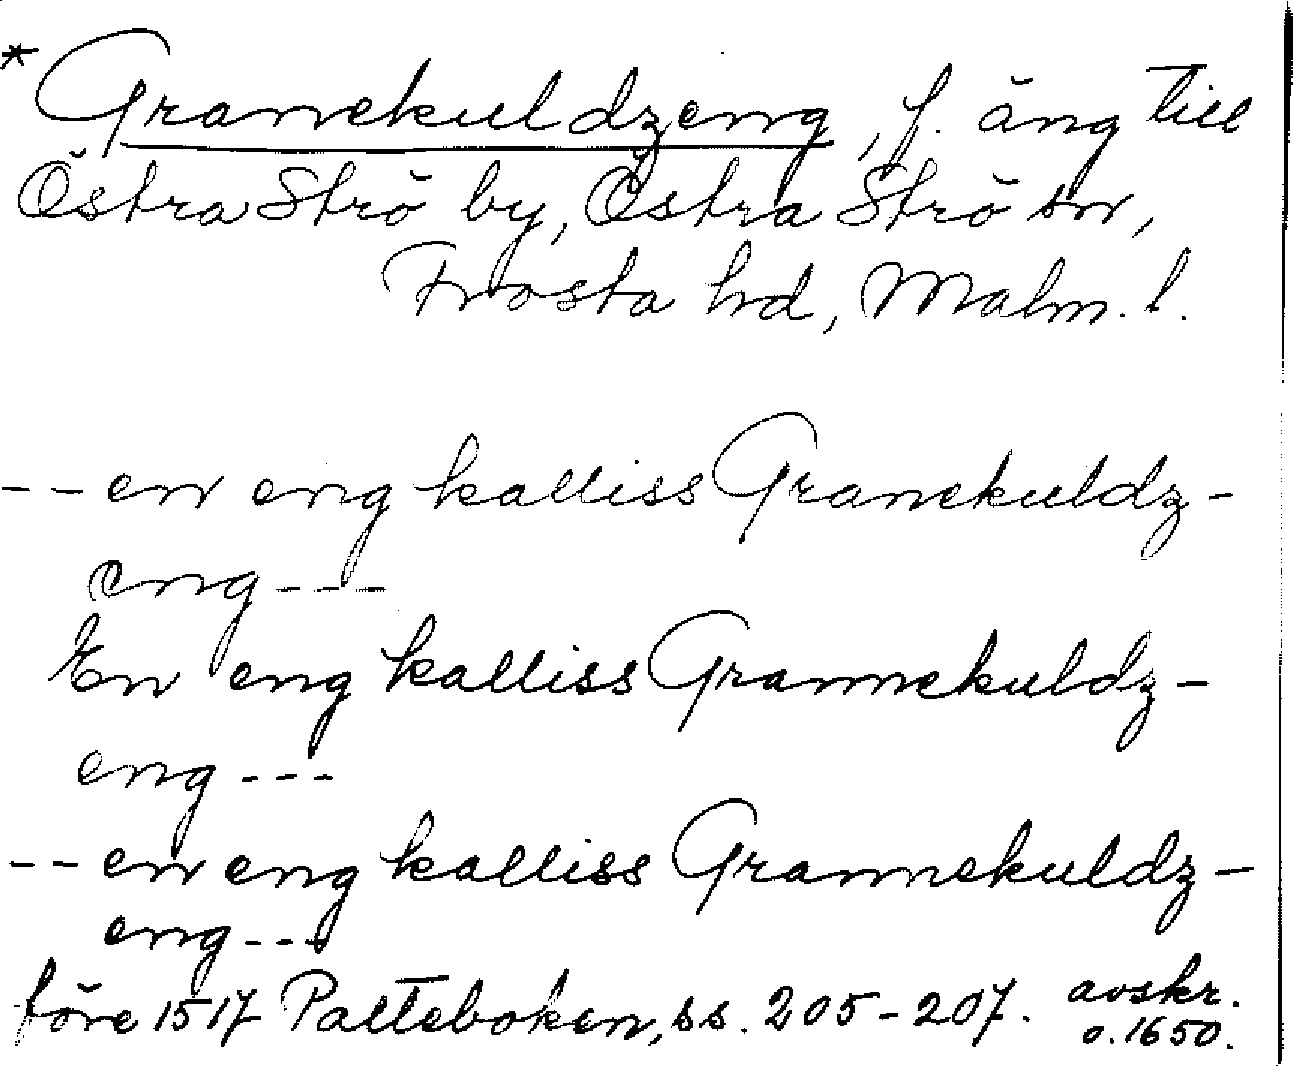 * Granekuldzeng, f. äng till
Östra Strö by, Östra Strö sn,
Frosta hd, Malm. l.
-- en eng kalliss Granekuldz-
eng ---
En eng kalliss Grannekuldz-
eng ---
-- en eng kalliss Grannekuldz-
eng ---
före 1517 Palteboken, ss. 205-207. avskr.
o. 1650.